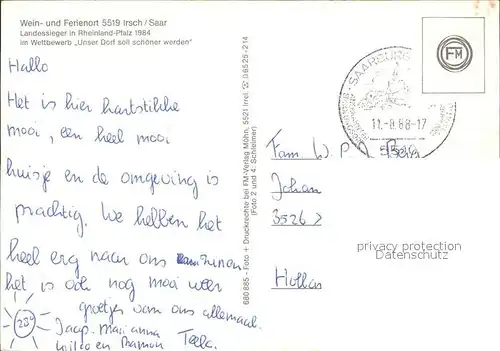 Wein- und Ferienort 5519 Irsch/Saar
Landessieger in Rheinland-Pfalz 1984
im Wettbewerb „Unser Dorf soll schöner werden"
FM
SAARBURG
11.-8.88-17
Hallo
Het is hier hartstikke
mooi, een heel mooi
huisje en de omgeving is
prachtig. We hebben het
heel erg naar ons zin en
het is ook nog mooi weer
28°
groetjes van ons allemaal.
Jaap. Marianna
Wilco en Ramon Teela.
680 885 - Foto + Druckrechte bei FM-Verlag Möhn, 5521 Irrel, ☎ 06525-214
(Foto 2 und 4: Schleimer)
Fam. W. P.
Johan
3526
Hollan
privacy protection
Datenschutz